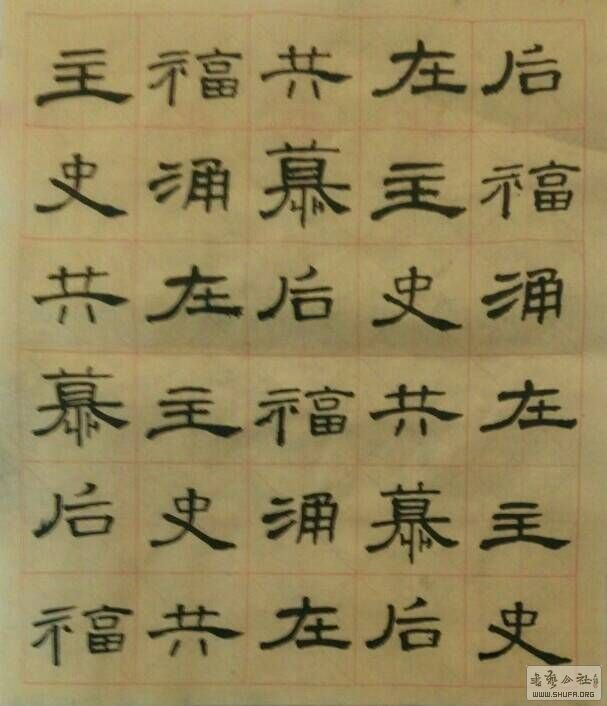 主福共在后
史涌慕主福
共在后史涌
慕主福共在
后史涌慕主
福共在后史
書藝公社
WWW.SHUFA.ORG